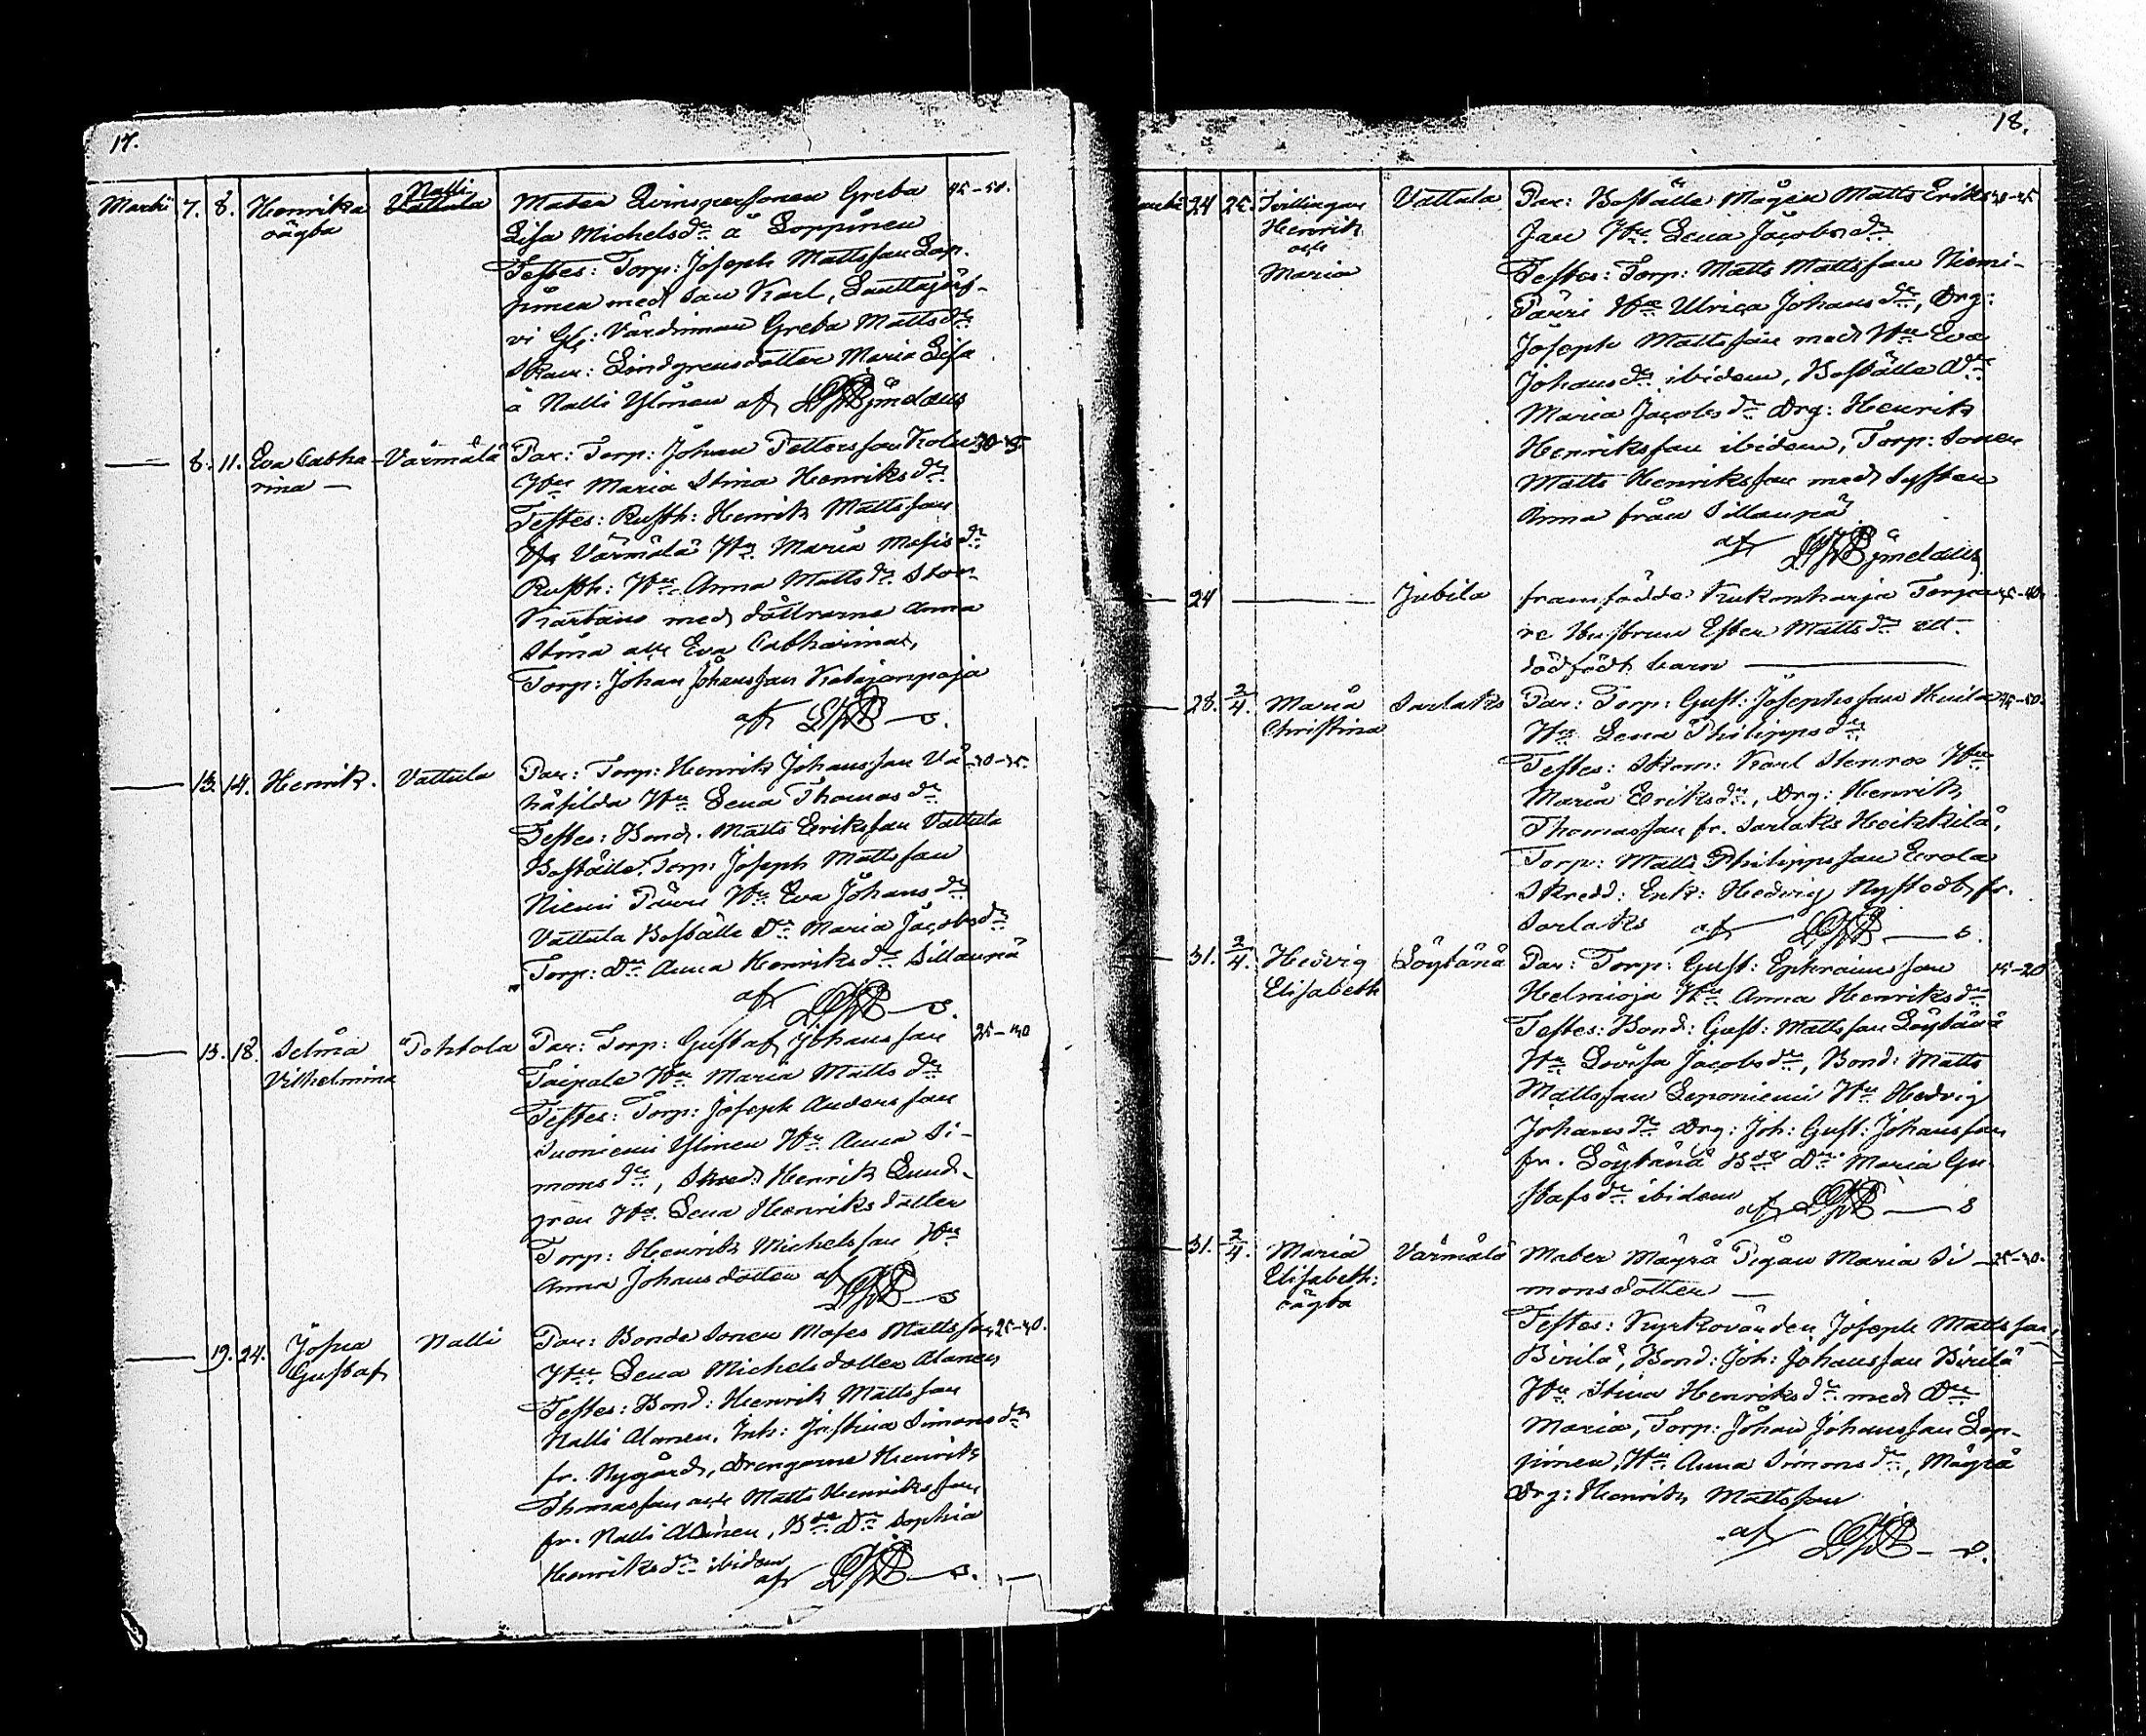 17.
Martii 7. 8. Henrika oägta
Nalli
Mater Qvinspersonen Greta 45-50.
Lisa Michelsdr å Loppinen
Testes: Torp: Joseph Mattsson Lop-
pinen med Son Karl,
vi Gl: Värdinnan Greta Mattsdr
Lindgrens dotter Maria Lisa
å Nalli Ylinen af
8. 11. Eva Catha-
rina —
Värmälä
Par: Torp: Johan Pettersson
Hu Maria Stina Henriksdr
Testes: Rusth: Henrik Mattsson
Värmälä Hu Maria Mosisdr
Rusth: Hu Anna Mattsdr
Kartano med döttrarne Anna
Stina och Eva Catharina,
Torp: Johan Johansson Katajanpaja
af
13. 14. Henrik. Vattula
Par: Torp: Henrik Johansson Vä- 30-35.
häsilda Hu Lena Thomasdr
Testes: Bond. Matts Eriksson Vattula
Boställe, Torp: Joseph Mattsson
Niemi Hu Eva Johansdr
Vattula Boställe Dr Maria Jacobsdr
Torp: Dr Anna Henriksdr Sillanpä
af
13. 18. Selma
Vilhelmina
Pohtola
Par: Torp: Gustaf Johansson 25-30
Taipale Hu Maria Mattsdr
Testes: Torp: Joseph Andersson
Suoniemi Ylinen Hu Anna Si-
monsdr, Henrik Lund-
gren Hu Lena Henriksdotter
Torp: Henrik Michelsson Hu
Anna Johansdotter af
19. 24. Josua
Gustaf
Nalli
Par: Bonde Sonen Moses Mattsson 25-30.
Hu Lena Michelsdotter Alanen
Testes: Bond: Henrik Mattsson
Nalli Alanen, Inh: Justina Simonsdr
fr. Nygård, Drengarne Henrik
Thomasson och Matts Henriksson
fr. Nalli Alanen, Bde Dr Sophia
Henriksdr ibidem
af
18.
24 Tvillingar
Henrik
och
Maria
Vattula
Par: Boställe Mågen Matts Eriks-
son Hu Lena Jacobsdr
Testes: Torp: Matts Mattsson Niemi-
Hu Ulrica Johansdr, Drg:
Joseph Mattsson med Hu Eva
Johansdr ibidem, Boställe Dr
Maria Jacobsdr Drg: Henrik
Henriksson ibidem, Torp: Sonen
Matts Henriksson med Systern
Anna från Sillanpä
af
— 24 — Jutila
framfödde Kukonharja Torpa- 35-40.
re Hustrun Ester Mattsdr ett
dödfödt barn —
28. 2/4. Maria
Christina
Sarlaks
Par: Torp: Gust: Josephsson 45-50.
Hu Lena Philippsdr
Testes: Karl Stenros Hu
Maria Eriksdr, Drg: Henrik
Thomasson fr. Sarlaks Heikkilä,
Torp: Matts Philippsson Erola
Skredd: Enk: Hedvig Nystedt fr.
Sarlaks af
31. 2/4. Hedvig
Elisabeth
Löytänä
Par: Torp: Gust: Ephraimsson 15-20
Helmioja Hu Anna Henriksdr
Testes: Bond: Gust: Mattsson Löytänä
Hu Lovisa Jacobsdr, Bond: Matts
Mattsson Leponiemi Hu Hedvig
Johansdr Drg: Joh: Gust: Johansson
fr. Löytänä Bde Dr Maria Gu-
stafsdr ibidem af
31. 2/4. Maria
Elisabeth:
oägta
Värmälä
Mater Mäyrä Pigan Maria Si-
monsdotter —
Testes: Kyrkovärden Joseph Mattsson,
Birilä, Bond: Joh: Johansson Birilä
Hu Stina Henriksdr med Dr
Maria, Torp: Johan Johansson Lop-
pinen, Hu Anna Simonsdr, Mäyrä
Drg: Henrik Mattsson
af